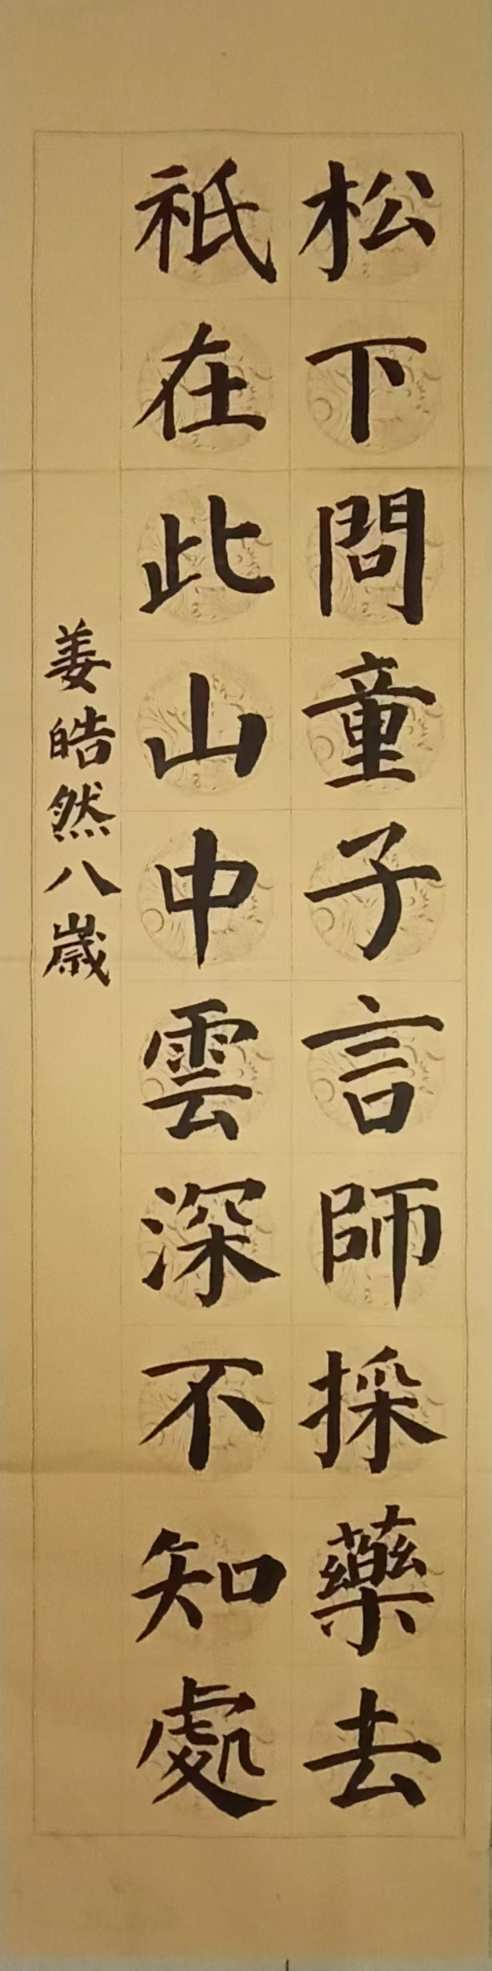 松下問童子言師採藥去
祇在此山中雲深不知處
姜皓然八歲